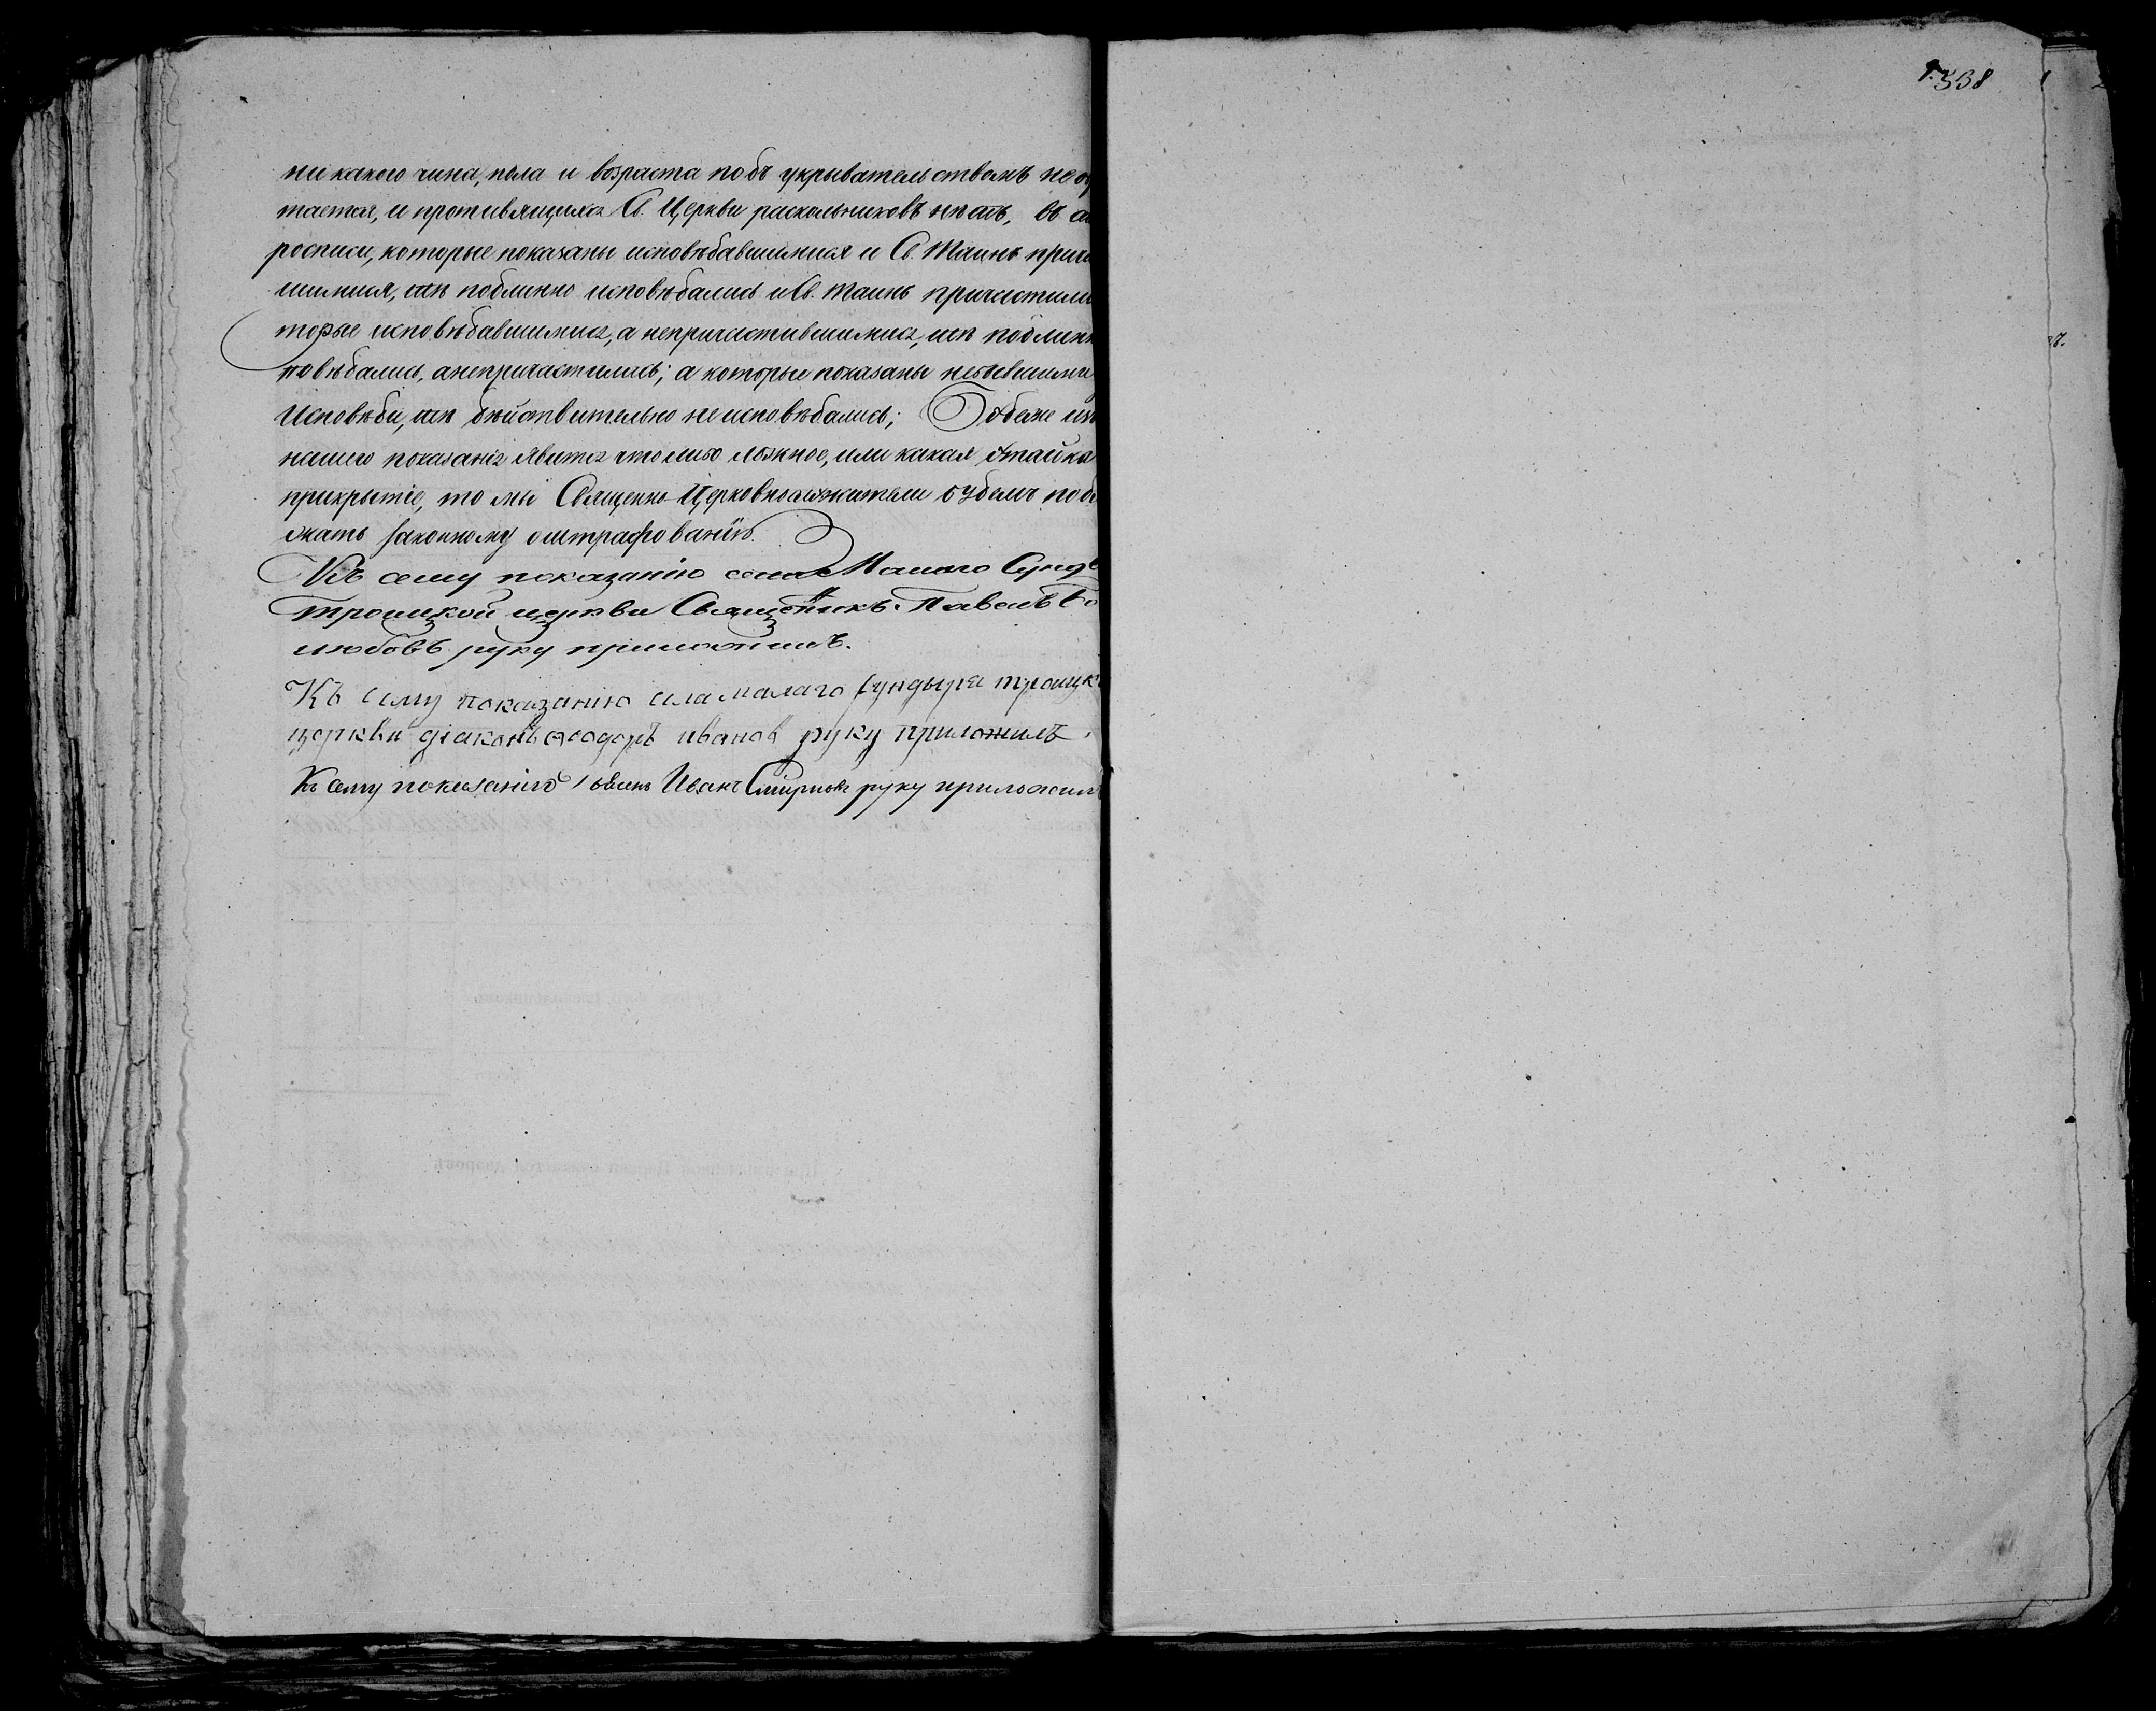 ни какого чина, пола и возраста подъ укрывательствомъ не об
тается, и противящихся Св. Церкви раскольниковъ нетъ, въ
росписи, которые показаны исповѣдавшимися и Св. Таинъ прича
шимися, тѣ подлинно исповѣдались и Св. Таинъ причастили
торые исповѣдавшимися, а непричастившимися, тѣ подлинн
повѣдались, а непричастились; а которые показаны небывшими
Исповѣди, тѣ дѣйствительно не исповѣдались; Ежели изъ
нашего показанія явится что либо ложное, или какая утайка
прикрытіе, то мы Священно-Церковнослужители будемъ подл
жать законному оштрафованію.
Къ сему показанію села Малаго Сунд
Троицкой церкви Священникъ Павелъ Бо
любовъ руку приложилъ.
Къ сему показанію села малаго сундыря троицк
церкви діаконъ Ѳеодоръ иванов руку приложилъ
Къ сему показанію Иванъ Смирновъ руку приложил
538